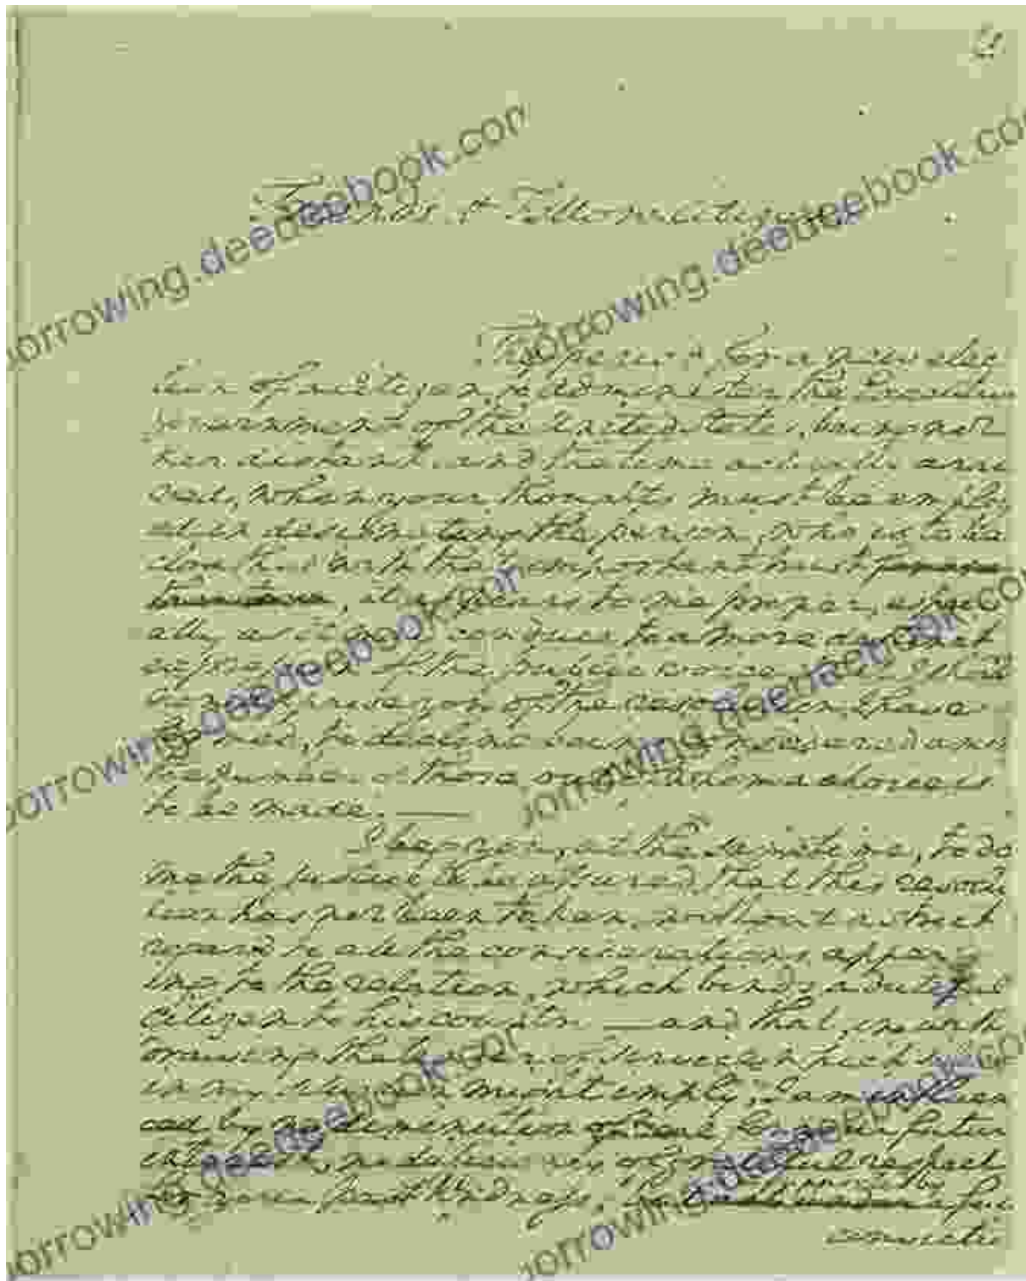 Friends, & Fellow-Citizens
The period for a new elec
tion of a citizen, to administer the Executive
government of the United States, being not
far distant, and the time actually arri
ved, when your thoughts must be employ
ed in designating the person, who is to be
cloathed with the important trust
, it appears to me proper, especi
ally as it may conduce to a more distinct
expression of the public voice, that I should
of the resolution I have
formed, to decline being considered among
the number of those, out of whom a choice is
to be made. —
I beg you, at the same time, to do
me the justice to be assured, that this resolu
tion has not been taken, without a strict
regard to all the considerations apper
ing to the relation, which binds a dutiful
citizen to his country — and that, in with
drawing the tender of service which
in my situation might imply, I am influen
ced by no diminution of zeal for your future
interest, no deficiency of grateful respect
for your past kindness; but a full
convictio
borrowing.deedeebook.com
borrowing.deedeebook.com
borrowing.deedeebook.com
borrowing.deedeebook.com
borrowing.deedeebook.com
borrowing.deedeebook.com